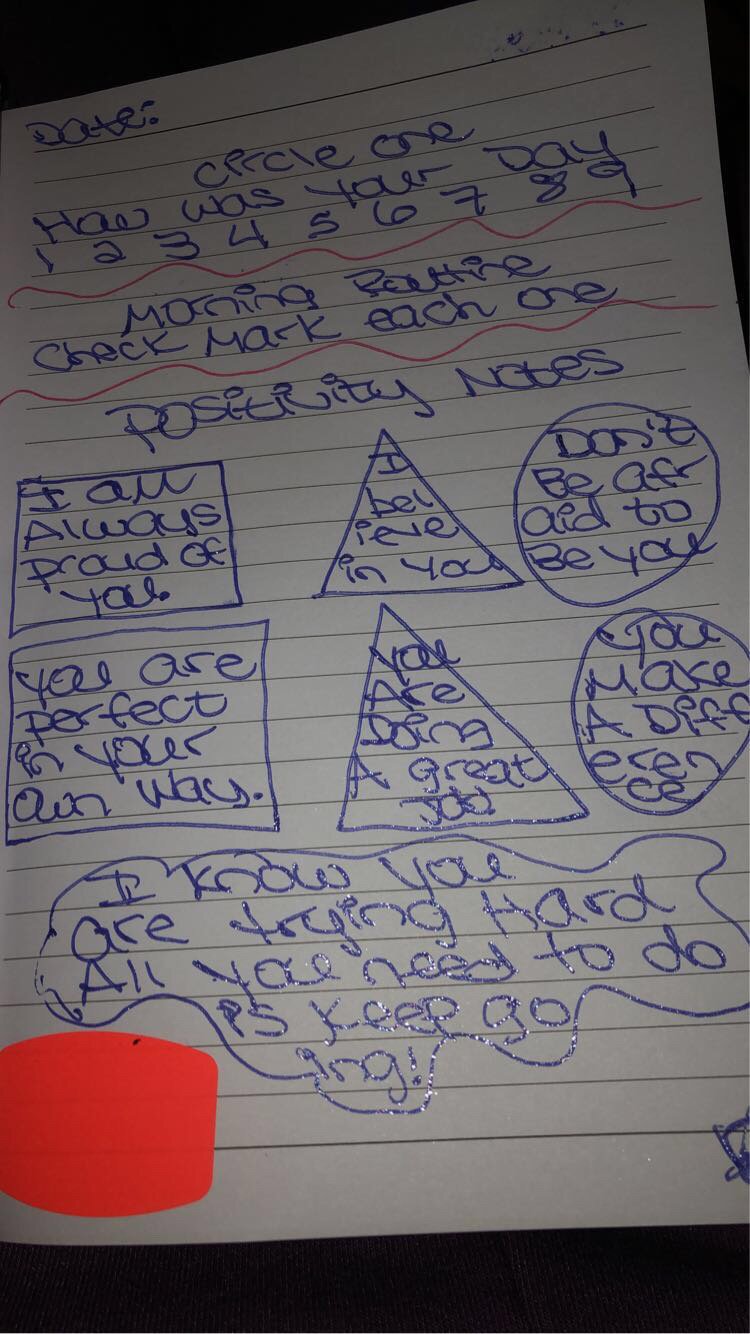 Date:
Circle one
How was your Day
1 2 3 4 5 6 7 8 9
Morning Routine
Check Mark each one
Positivity Notes
I am
Always
Proud of
You.
I
bel
ieve
in you
Don't
Be afr
aid to
Be you
You are
Perfect
in your
own way.
You
Are
Doing
A great
Job
You
Make
A Diff
eren
ce
I know you
are trying Hard
All you need to do
is keep go
ing!